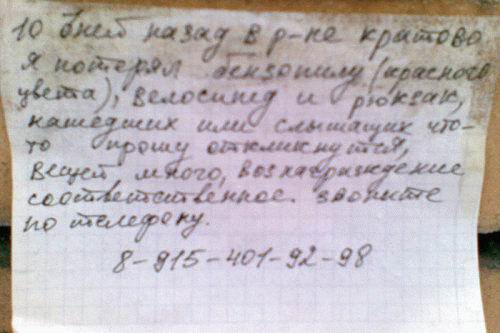 10 дней назад в р-не крытово
я потерял бензопилу (красного
цвета), велосипед и рюкзак,
нашедших или слышащих что-
то прошу откликнутся,
вещей много, вознаграждение
соответственное. звоните
по телефону.
8-915-401-92-98